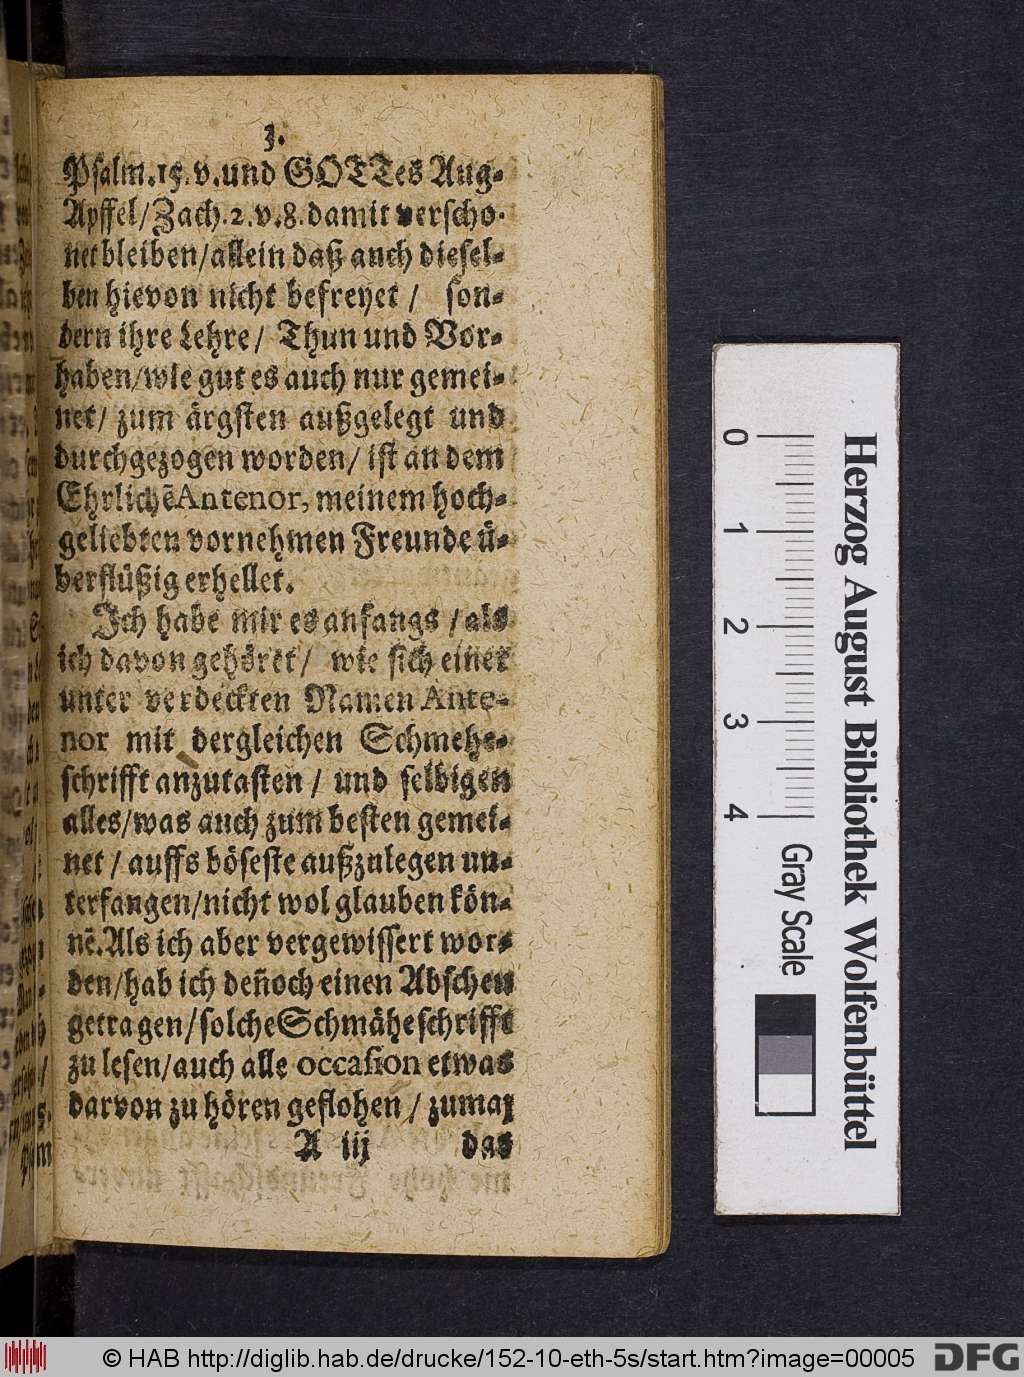 3.
Psalm.15.v.und GOTTes Aug-
Apffel/Zach.2.v.8.damit verscho-
net bleiben/allein daß auch diesel-
ben hievon nicht befreyet / son-
dern ihre Lehre/ Thun und Vor-
haben/wie gut es auch nur gemei-
net/ zum ärgsten außgelegt und
durchgezogen worden/ ist an dem
Ehrlichẽ Antenor, meinem hoch-
geliebten vornehmen Freunde ü-
berflüßig erhellet.
Ich habe mir es anfangs /als
ich davon gehöret/ wie sich einer
unter verdeckten Namen Ante-
nor mit dergleichen Schmehe-
schrifft anzutasten / und selbigen
alles/was auch zum besten gemei-
net / auffs böseste außzulegen un-
terfangen/nicht wol glauben kön-
nẽ.Als ich aber vergewissert wor-
den/hab ich deñoch einen Abscheu
getragen/solche Schmäheschrifft
zu lesen/auch alle occasion etwas
darvon zu hören geflohen / zumal
A iij das
0 1 2 3 4 Gray Scale
Herzog August Bibliothek Wolfenbüttel
© HAB http://diglib.hab.de/drucke/152-10-eth-5s/start.htm?image=00005
DFG